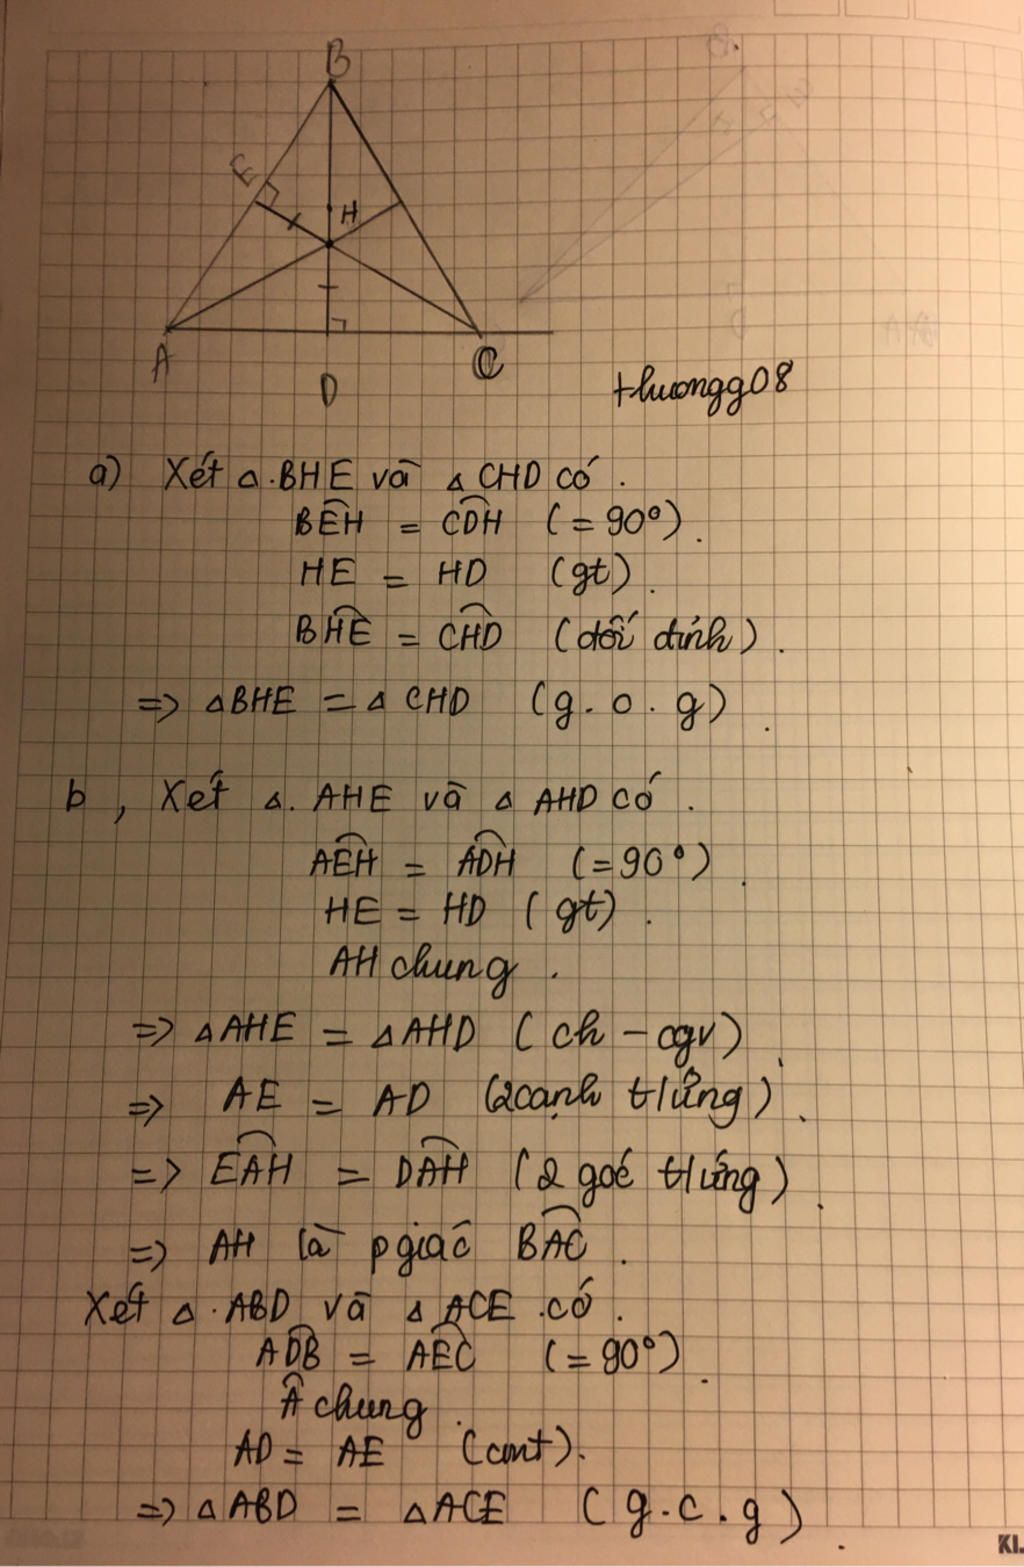 B
E
H
A
D
C
thuongg08
a) Xét △.BHE và △ CHD có.
BEH = CDH (= 90°).
HE = HD (gt).
BHE = CHD (đối đỉnh).
=> △BHE = △ CHD (g.c.g).
b, Xét △. AHE và △ AHD có.
AEH = ADH (= 90°).
HE = HD (gt).
AH chung.
=> △AHE = △AHD (ch - cgv).
=> AE = AD (2 cạnh t/ứng).
=> EAH = DAH (2 góc t/ứng).
=> AH là pgiác BAC.
Xét △.ABD và △ ACE .có.
ADB = AEC (= 90°).
Â chung.
AD = AE (cmt).
=> △ABD = △ACE (g.c.g).
KI.